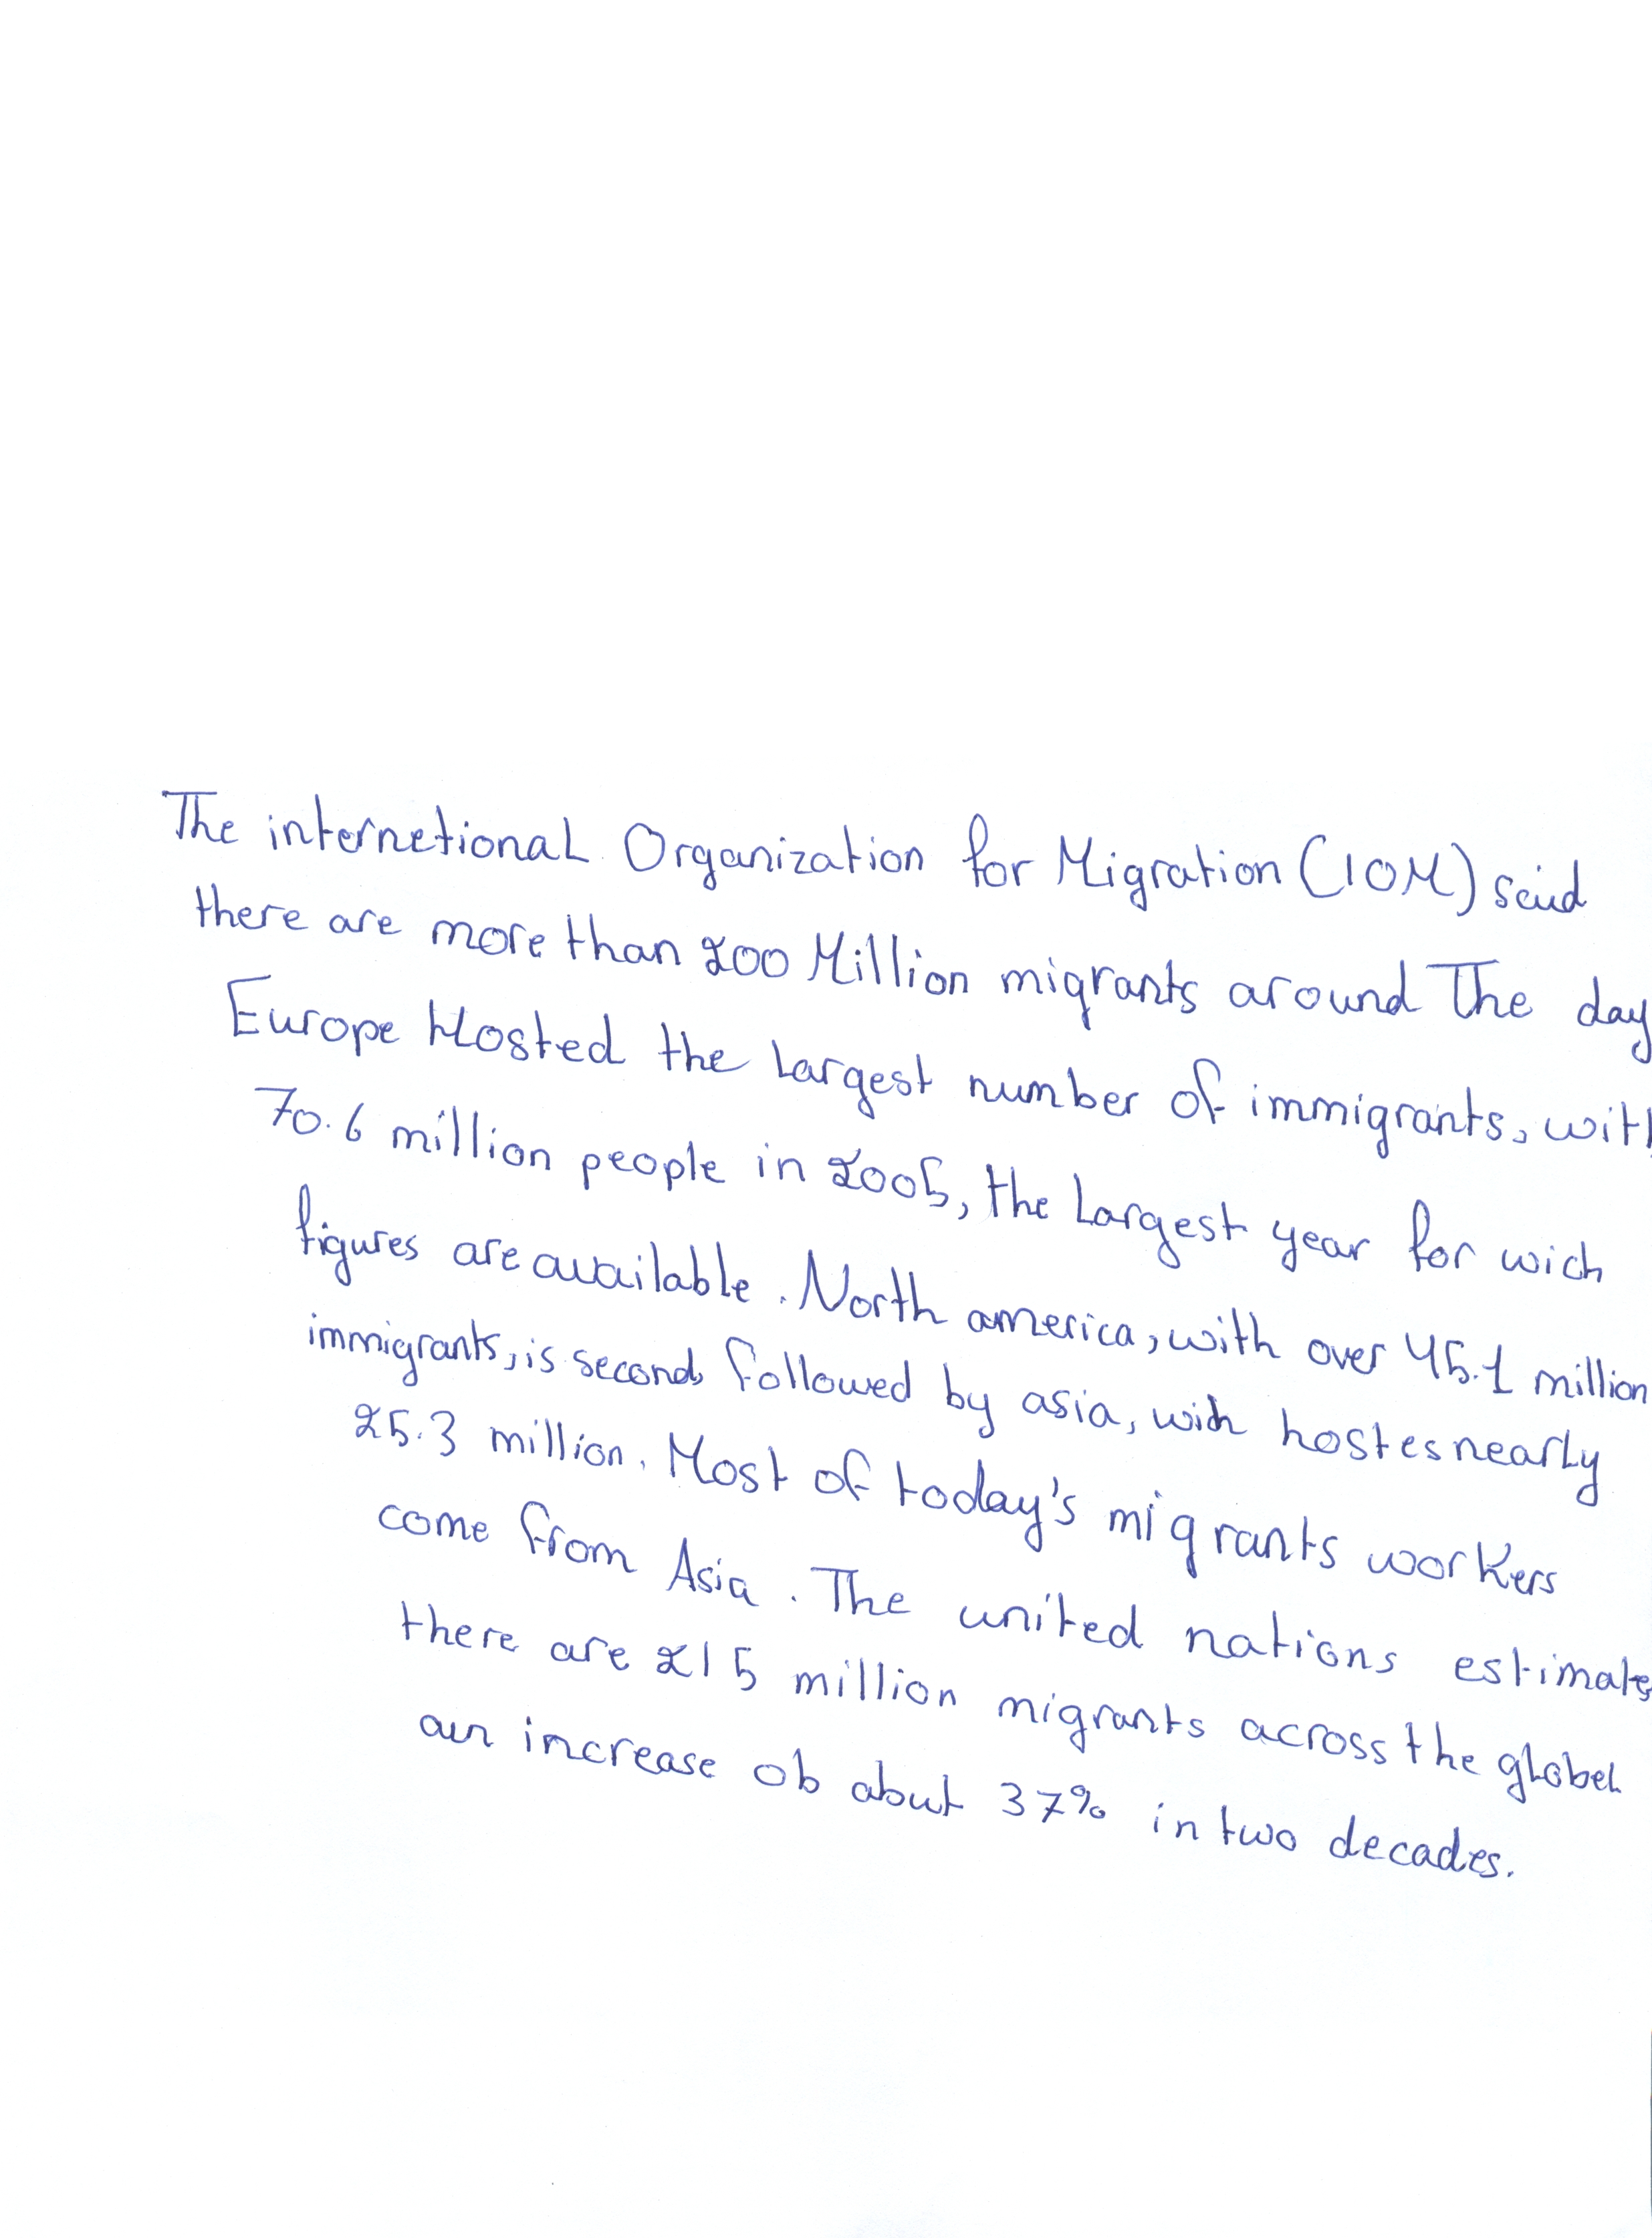 The internetional Organization for Migration (IOM) said
there are more than 200 Million migrants around The day
Europe Hosted the largest number of immigrants, with
70.6 million people in 2005, the largest year for wich
figures are available. North america, with over 45.1 million
immigrants, is second, followed by asia, wich hostes nearly
25.3 million. Most of today's migrants workers
come from Asia. The united nations estimate
there are 215 million migrants across the globel
an increase ob about 37% in two decades.